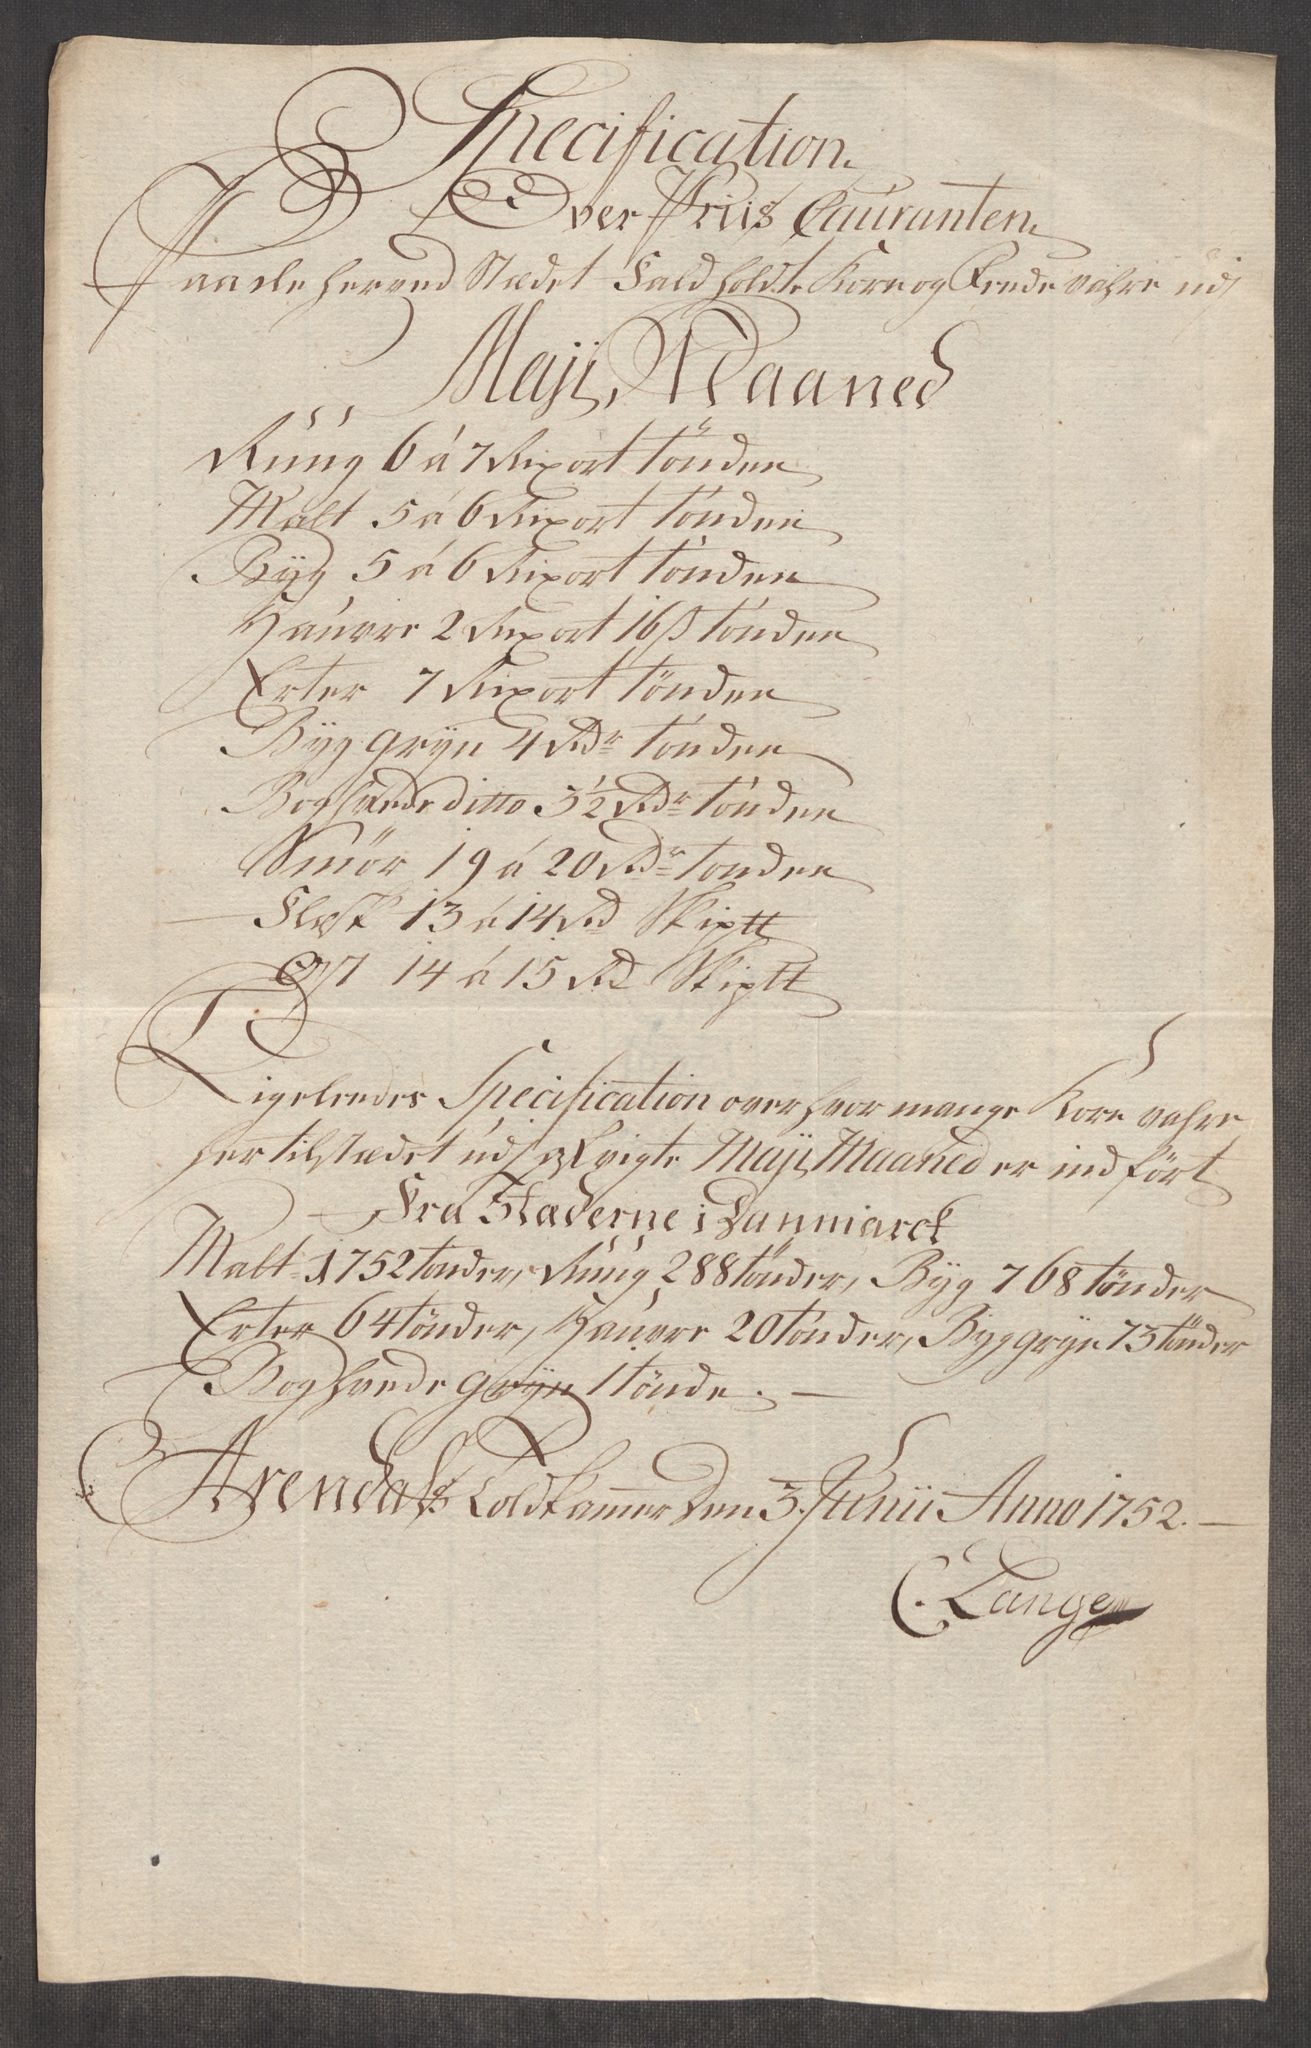 Specification
Over Priis Couranten
Paa de herved Stædet Fald holdte Korn og Fede vahre udj
Maji Maaned
Rúúg 6 á 7 Rixort tönden
Malt 5 á 6 Rixort tönden
Byg 5 á 6 Rixort tönden
Haúvre 2 Rixort 16 ß tönden
Erter 7 Rixort tönden
Byg grÿn 4 Rdr tönden
Boghvede ditto 5½ Rdr tönden
Smör 19 á 20 Rdr tönden
Flæsk 13 á 14 Rd Skiptt
Ost 14 á 15 Rd Skiptt
Ligeleedes Specification over hvor mange Korn vahre
her til stædet udj afvigte Maji Maaned er indfört
Fra Stæderne i Danmarck
Malt 1752 tönder, Rúúg 288 tönder, Bÿg 768 tönder
Erter 64 tönder, Haúvre 20 tönder, Byggrÿn 73 tönder
Boghvede grÿn 1 tönde. —
Arendals Toldkammer den 3. Junii Anno 1752. —
C. Lange